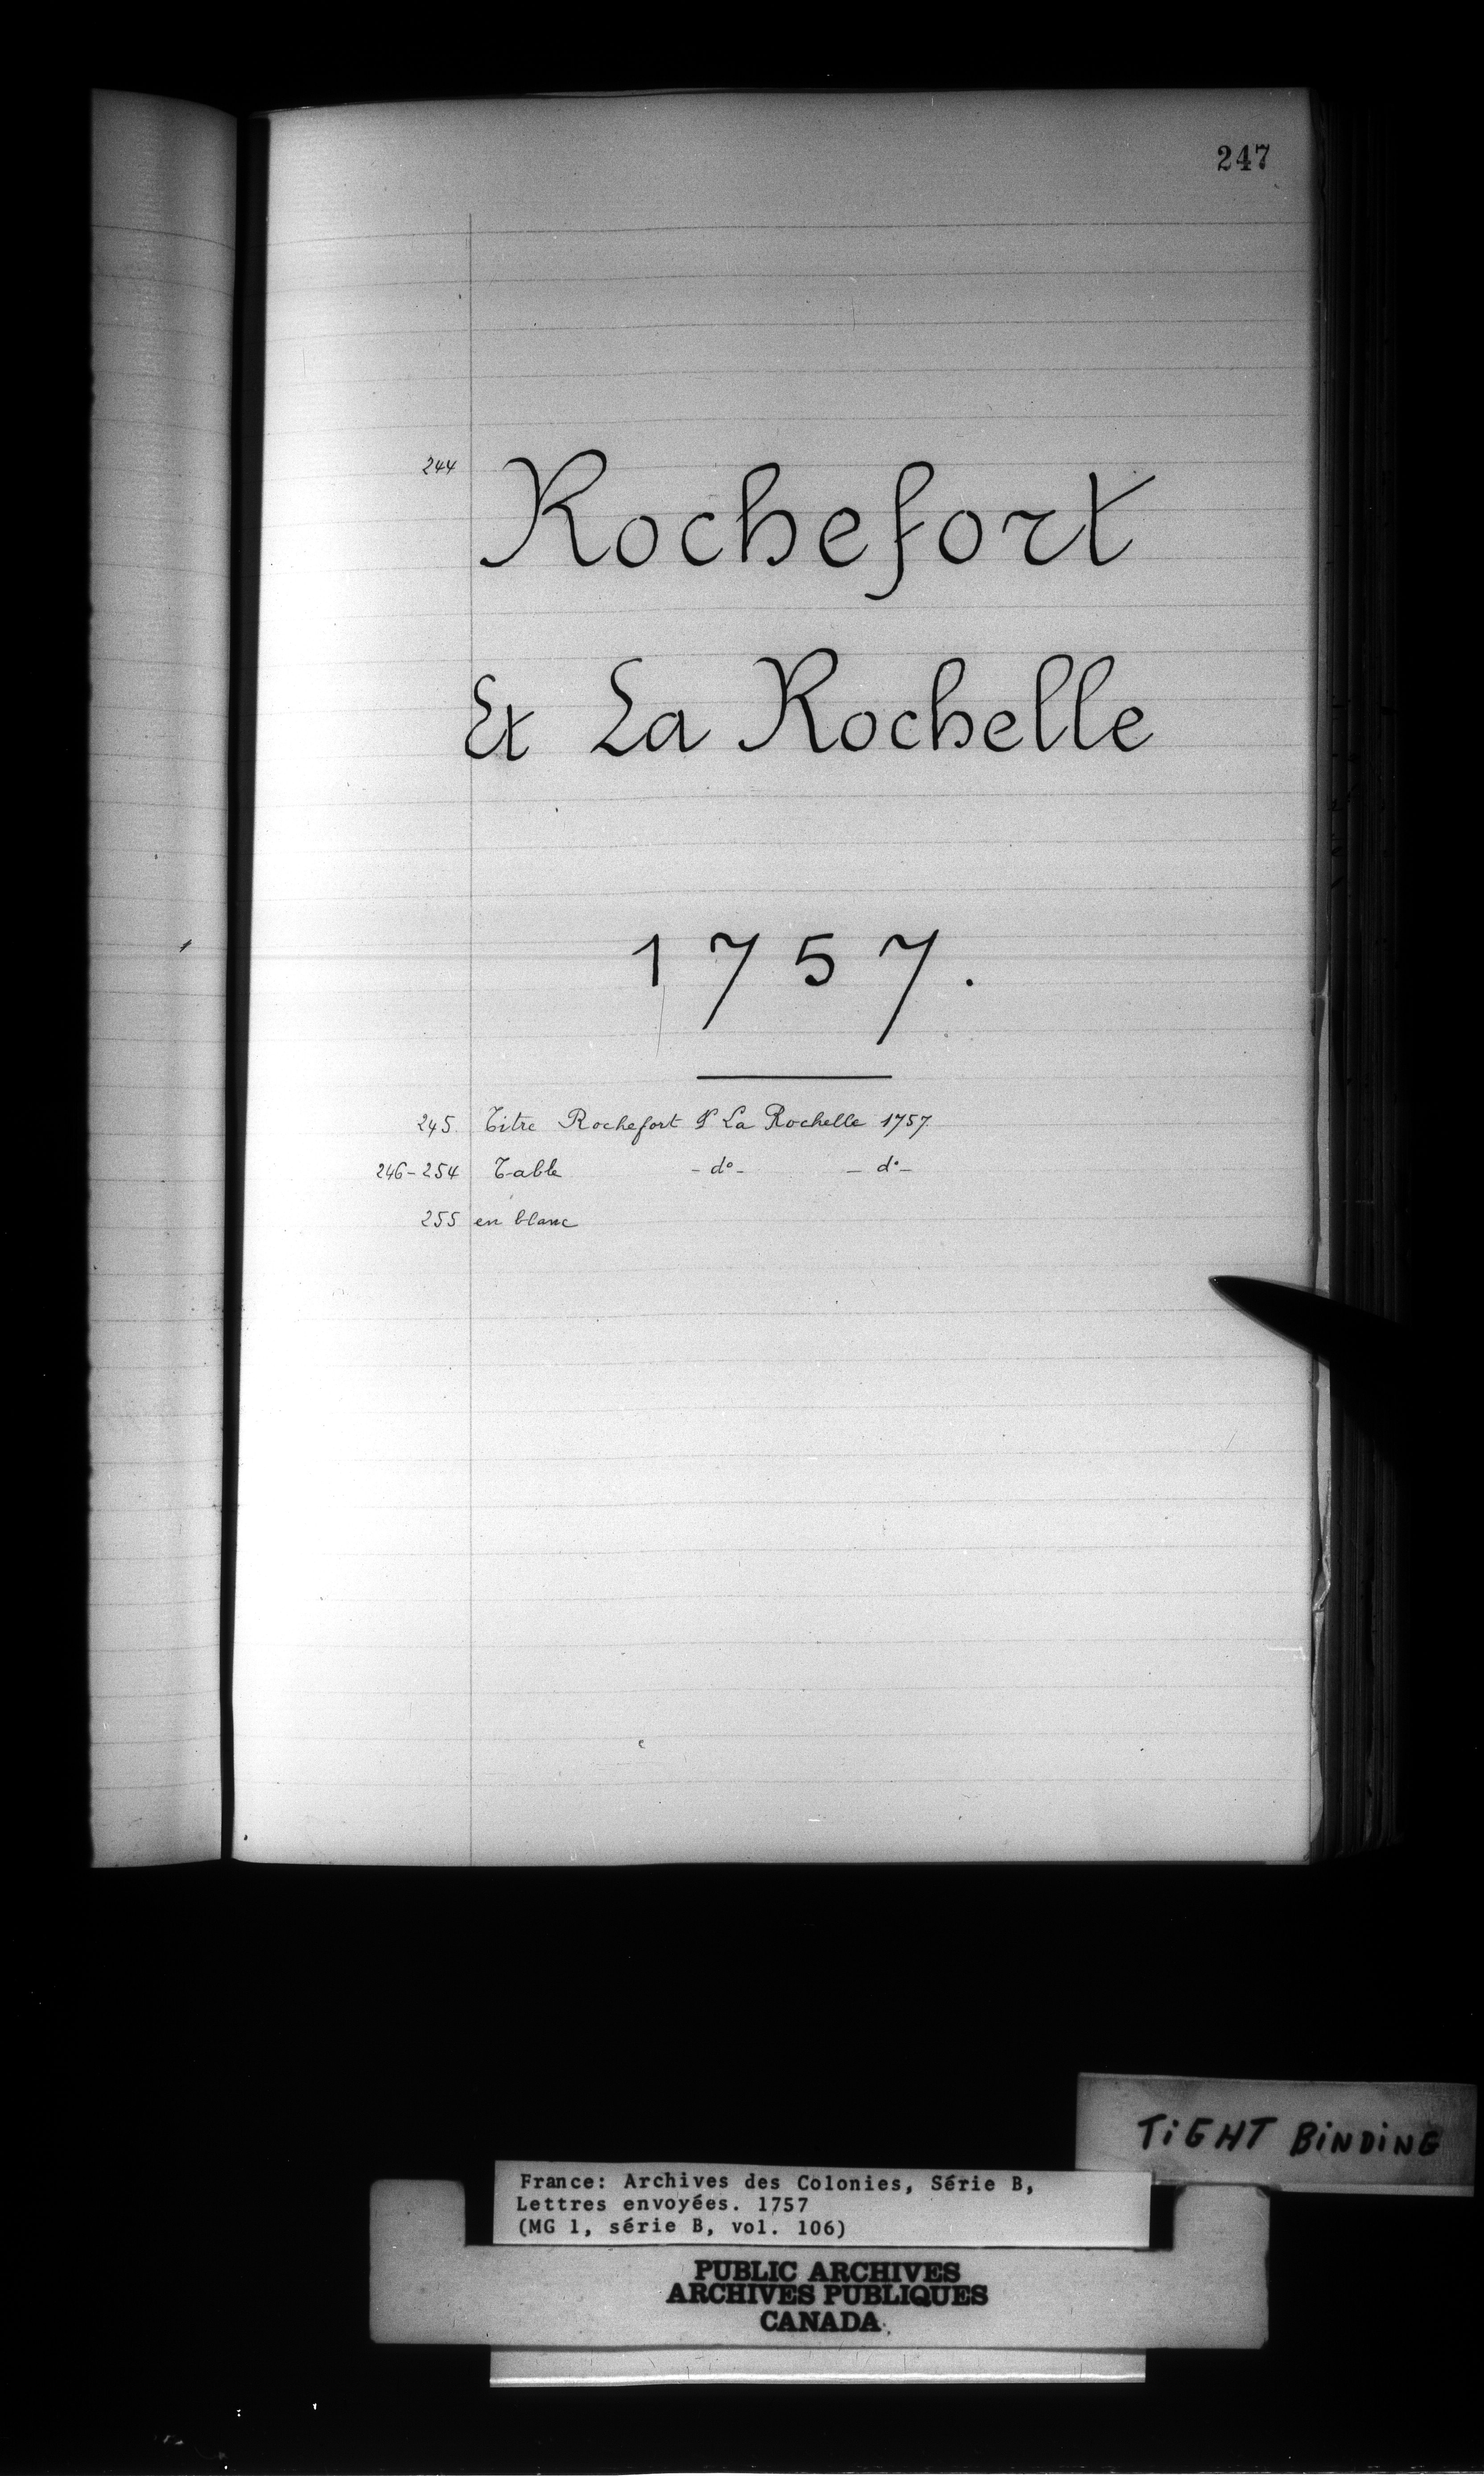 247
244 Rochefort
Et La Rochelle
1757.
245. Titre Rochefort & La Rochelle 1757
246-254 Table -do- -do-
255 en blanc
TiGHT BiNDiNG
France: Archives des Colonies, Série B,
Lettres envoyées. 1757
(MG 1, série B, vol. 106)
PUBLIC ARCHIVES
ARCHIVES PUBLIQUES
CANADA